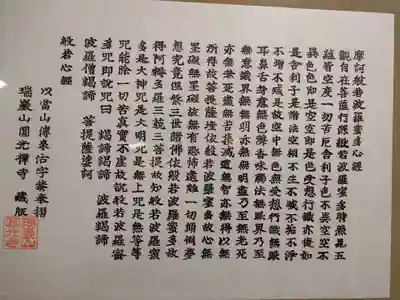 摩訶般若波羅蜜多心經
觀自在菩薩行深般若波羅蜜多時照見五
蘊皆空度一切苦厄舍利子色不異空空不
異色色即是空空即是色受想行識亦復如
是舍利子是諸法空相不生不滅不垢不淨
不增不減是故空中無色無受想行識無眼
耳鼻舌身意無色聲香味觸法無眼界乃至
無意識界無無明亦無無明盡乃至無老死
亦無老死盡無苦集滅道無智亦無得以無
所得故菩提薩埵依般若波羅蜜多故心無
罣礙無罣礙故無有恐怖遠離一切顛倒夢
想究竟涅槃三世諸佛依般若波羅蜜多故
得阿耨多羅三藐三菩提故知般若波羅蜜
多是大神咒是大明咒是無上咒是無等等
咒能除一切苦真實不虛故說般若波羅蜜
多咒即說咒曰 揭諦揭諦 波羅揭諦
波羅僧揭諦 菩提薩婆訶
般若心經
以當山傳來活字
瑞巖山圓光禪寺 藏版